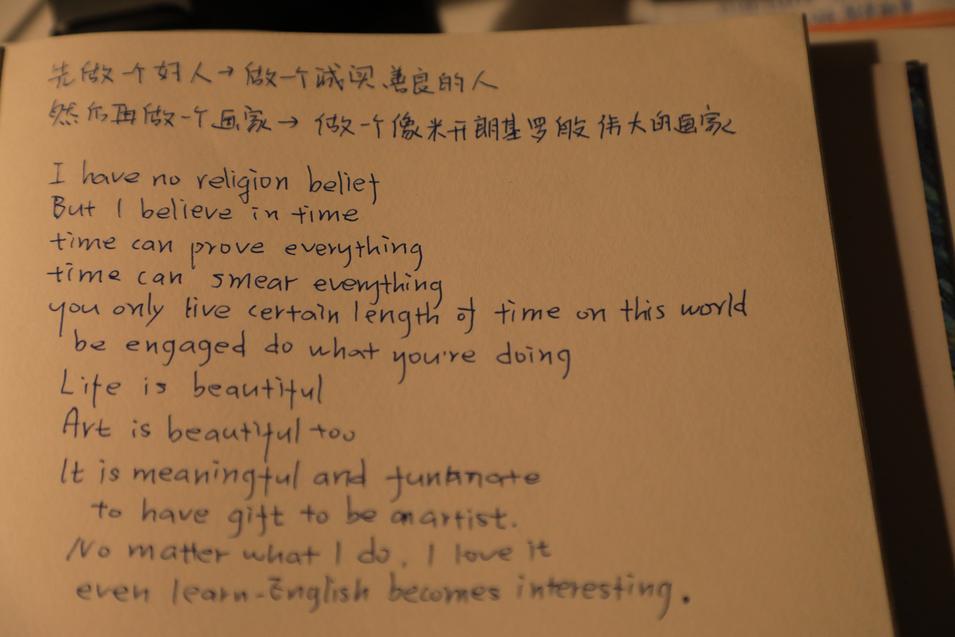 先做个好人→做一个诚实善良的人
然后再做一个画家→做一个像米开朗基罗般伟大的画家
I have no religion belief
But I believe in time
time can prove everything
time can smear everything
you only live certain length of time on this world
be engaged do what you're doing
Life is beautiful
Art is beautiful too
It is meaningful and
to have gift to be an artist.
No matter what I do, I love it
even learn-English becomes interesting.